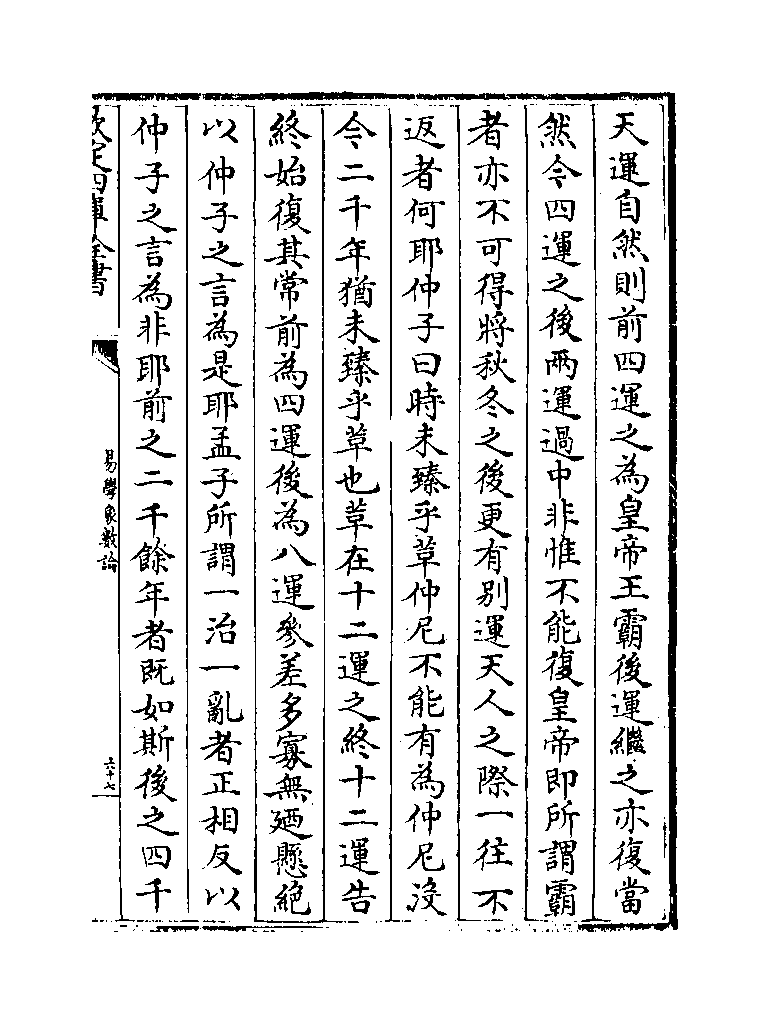 天運自然則前四運之為皇帝王霸後運繼之亦復當
然今四運之後兩運過中非惟不能復皇帝即所謂霸
者亦不可得將秋冬之後更有別運天人之際一往不
返者何耶仲子曰時未臻乎革仲尼不能有為仲尼沒
今二千年猶未臻乎革也革在十二運之終十二運告
終始復其常前為四運後為八運參差多寡無廼懸絶
以仲子之言為是耶孟子所謂一治一亂者正相反以
仲子之言為非耶前之二千餘年者既如斯後之四千
欽定四庫全書
易學象數論
六十七